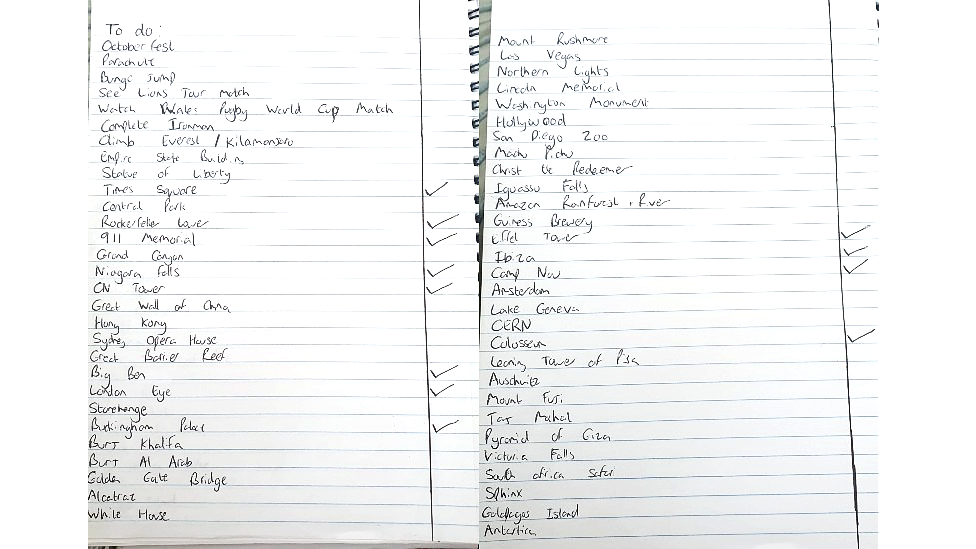 To do:
October fest
Parachute
Bunge Jump
See Lions Tour match
Watch Wales Rugby World Cup Match
Complete Ironman
Climb Everest / Kilamonjaro
Empire State Building
Statue of Liberty
Times Square
Central Park
Rockerfeller tower
911 Memorial
Grand Canyon
Niagara Falls
CN Tower
Great Wall of China
Hong Kong
Sydney Opera House
Great Barrier Reef
Big Ben
London Eye
Stonehenge
Buckingham Palace
Burj Khalifa
Burj Al Arab
Golden Gate Bridge
Alcatraz
White House
Mount Rushmore
Las Vegas
Northern Lights
Lincoln Memorial
Washington Monument
Hollywood
San Diego Zoo
Machu Pichu
Christ the Redeemer
Iguassu Falls
Amazon Rainforest + River
Guiness Brewery
Eiffel Tower
Ibiza
Camp Nou
Amsterdam
Lake Geneva
CERN
Colosseum
Leaning Tower of Pisa
Auschwitz
Mount Fuji
Taj Mahal
Pyramid of Giza
Victoria Falls
South africa Safari
Sphinx
Galapagos Island
Antartica